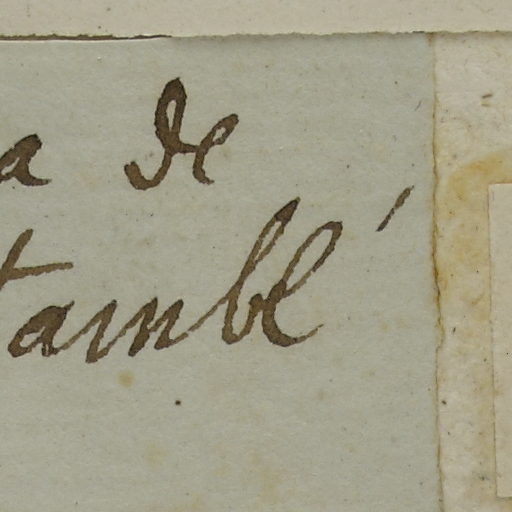 a de
tamblé